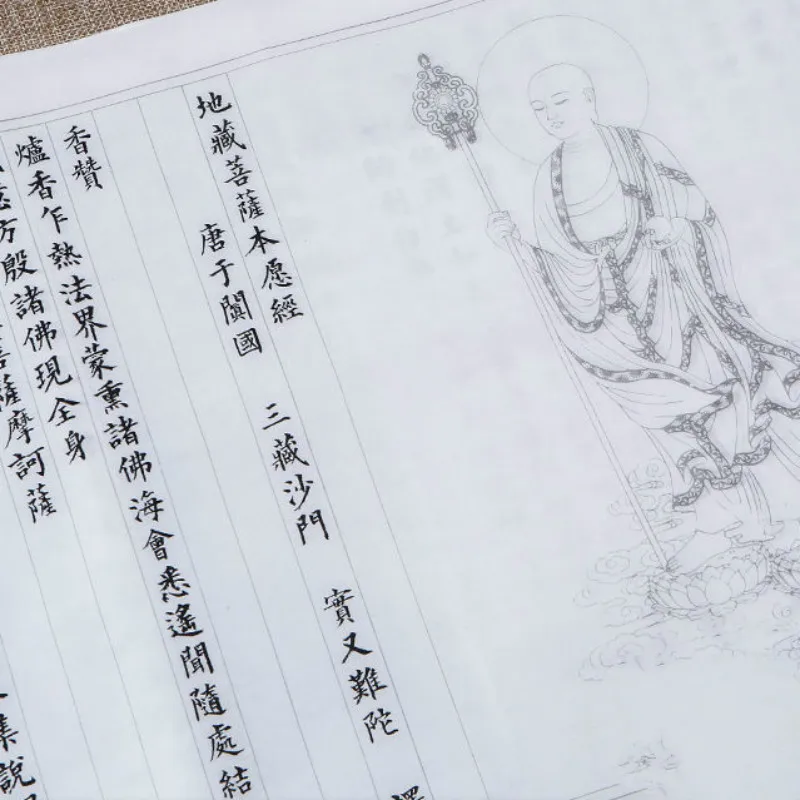 地藏菩薩本愿經
唐于闐國 三藏沙門 實又難陀
香贊
爐香乍熱法界蒙熏諸佛海會悉遙聞隨處結
方殷諸佛現全身
菩薩摩訶薩
集說